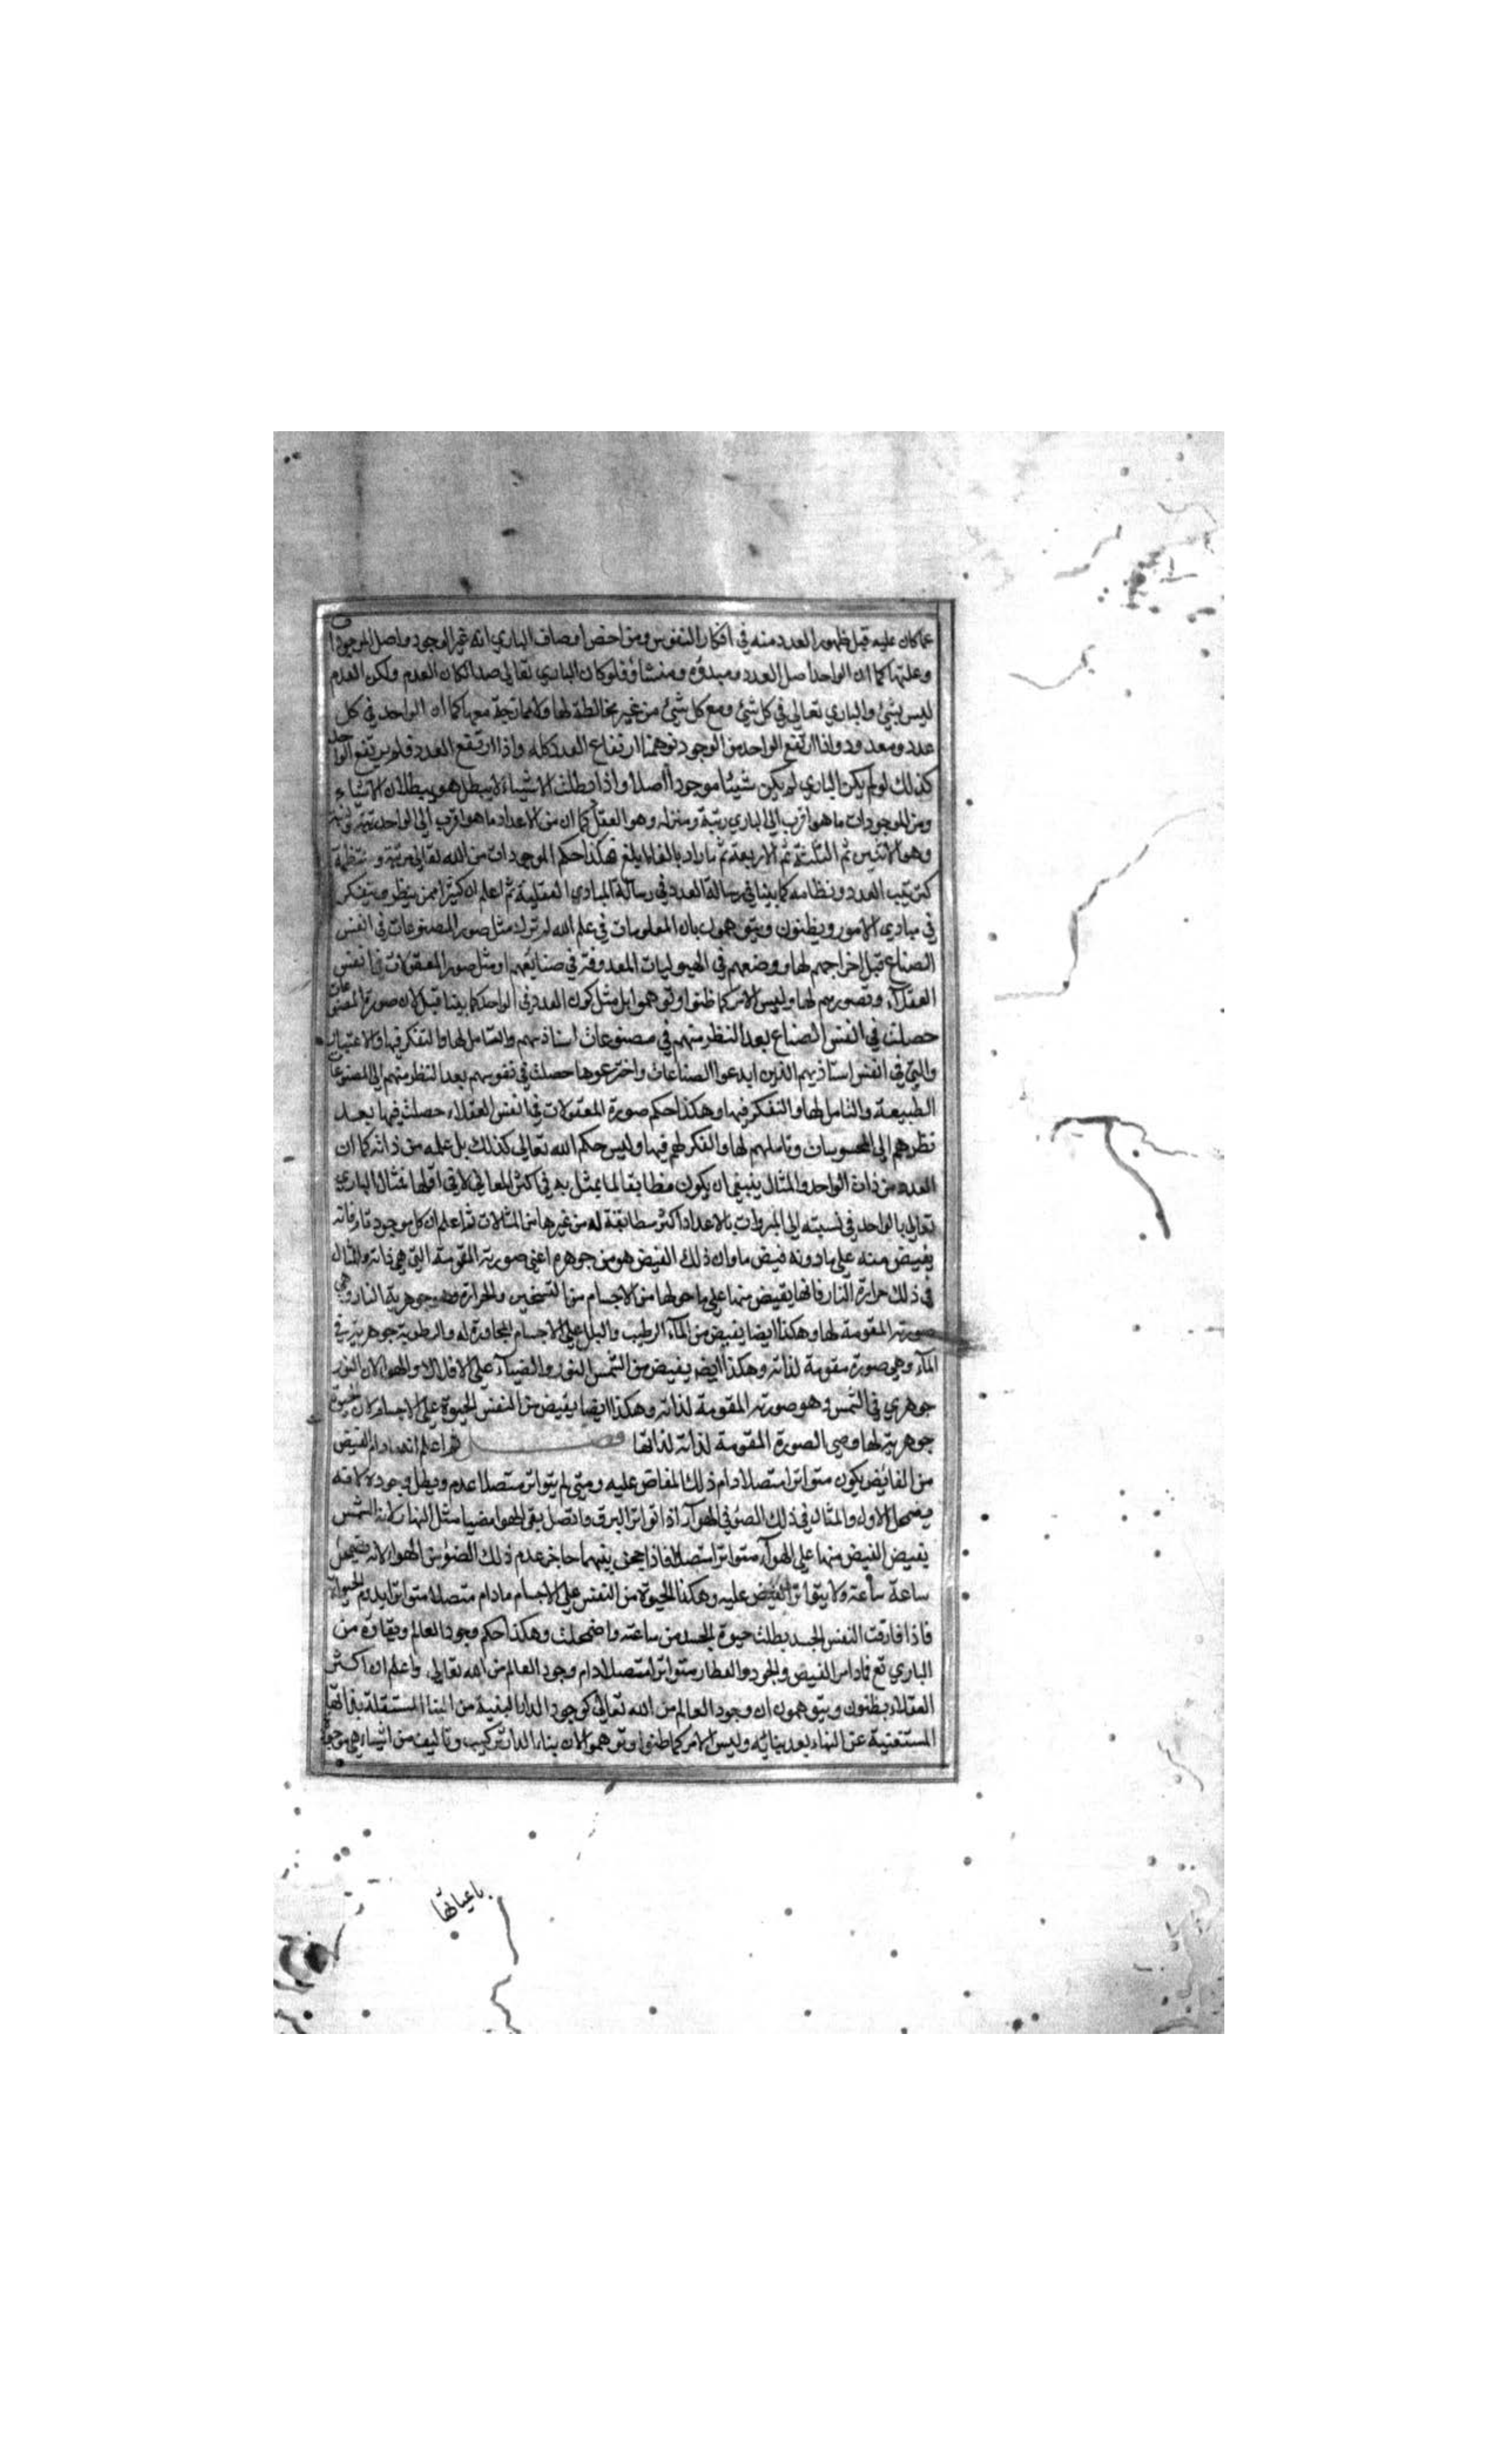 عما كان عليه قبل ظهور العدد منه في افكار النفوس ومن اخص اوصاف الباري انه الوجود واصل الموجودات
وعلتها كما ان الواحد اصل العدد ومبدؤه ومنشاؤه فلو كان الباري تعالى ضدا لكان العدم ولكن العدم
ليس بشيء والباري تعالى في كل شيء ومع كل شيء من غير مخالطة لها ولا ممازجة معها كما ان الواحد في كل
عدد ومعدود واذا ارتفع الواحد من الوجود توهمنا ارتفاع العدد كله واذا ارتفع العدد فلم يرتفع الواحد
كذلك لو لم يكن الباري لم يكن شيئا موجودا اصلا واذا بطلت الاشياء لا يبطل هو ببطلان الاشياء
ومن الموجودات ما هو اقرب الى الباري رتبة ومنزلة وهو العقل كما ان من الاعداد ما هو اقرب الى الواحد
وهو الاثنين ثم الثلثة ثم الاربعة ثم ما زاد بالغا ما بلغ فهكذا حكم الموجودات من الله تعالى مرتبة ومنتظمة
كترتيب العدد ونظامه كما بينا في رسالة العدد في رسالة المبادي العقلية ثم اعلم ان كثيرا ممن ينظر ويتفكر
في مبادي الامور ويظنون ويتوهمون بان المعلومات في علم الله لم تزل مثل صور المصنوعات في انفس
الصناع قبل اخراجهم لها ووضعهم في الهيوليات المعروفة في صنائعهم او مثل صور المعقولات في انفس
العقلاء وتصورهم لها وليس الامر كما ظنوا وتوهموا بل مثل كون العدد في الواحد كما بينا قبل لان صورة المصنوعات
حصلت في انفس الصناع بعد النظر منهم في مصنوعات استاذيهم والتامل لها والتفكر فيها والاعتبار
والتي في انفس استاذيهم الذين ابدعوا الصناعات واخترعوها حصلت في نفوسهم بعد النظر منهم الى المصنوعات
الطبيعة والتامل لها والتفكر فيها وهكذا حكم صورة المعقولات في انفس العقلاء حصلت فيها بعد
نظرهم الى المحسوسات وتاملهم لها والفكر لهم فيها وليس حكم الله تعالى كذلك بل علمه من ذاته كما ان
العدد من ذات الواحد والمثال ينبغي ان يكون مطابقا لما يمثل به في اكثر المعاني لا في اقلها فمثال الباري
تعالى بالواحد في نسبته الى بالاعداد اكثر مطابقة له من غيرها من المثالات ثم اعلم ان كل موجود تام فانه
يفيض منه على ما دونه فيض ما وان ذلك الفيض هو من جوهره اعني صورته المقومة التي هي ذاته والمثال
في ذلك حرارة النار فانها يفيض منها على ما حولها من الاجسام من التسخين والحرارة وهي جوهرية النار وهي
صورته المقومة لها وهكذا ايضا يفيض من الماء الرطيب والبلل على الاجسام المجاورة له والرطوبة جوهرية في
الماء وهي صورة مقومة لذاته وهكذا ايض يفيض من الشمس النور والضياء على الافلاك والهوا لان النور
جوهري في الشمس وهو صورته المقومة لذاته وهكذا ايضا يفيض من النفس الحيوة على الاجسام لان الحيوة
جوهرية لها وهي الصورة المقومة لذاته لذاتها فصل ثم اعلم انه ما دام الفيض
من الفائض يكون متواترا متصلا دام ذلك المفاض عليه ومتى لم يتواتر متصلا عدم وبطل وجوده لانه
يضمحل الاول والمثال في ذلك الضوء في الهوآء اذا تواتر البرق واتصل بقى الهوا مضيا مثل النهار لان الشمس
يفيض الفيض منها على الهوآء متواترا متصلا فاذا حجز بينهما حاجز عدم ذلك الضوء من الهواء لانه يضمحل
ساعة ساعة ولا يتواتر الفيض عليه وهكذا الحيوة من النفس على الاجسام ما دام متصلا متواترا يدوم الحيوة
فاذا فارقت النفس الجسد بطلت حيوة الجسد من ساعته واضمحلت وهكذا حكم وجود العالم وبقاؤه من
الباري تع فما دام الفيض والجود والعطاء متواترا متصلا دام وجود العالم من الله تعالى واعلم ان اكثر
العقلاء يظنون ويتوهمون ان وجود العالم من الله تعالى كوجود الدار المبنية من البناء المستقلة بذاتها
المستغنية عن البناء بعد بنائه وليس الامر كما ظنوا وتوهموا لان بناء الدار تركيب وتاليف من اشياء هي موجودة
باعيانها